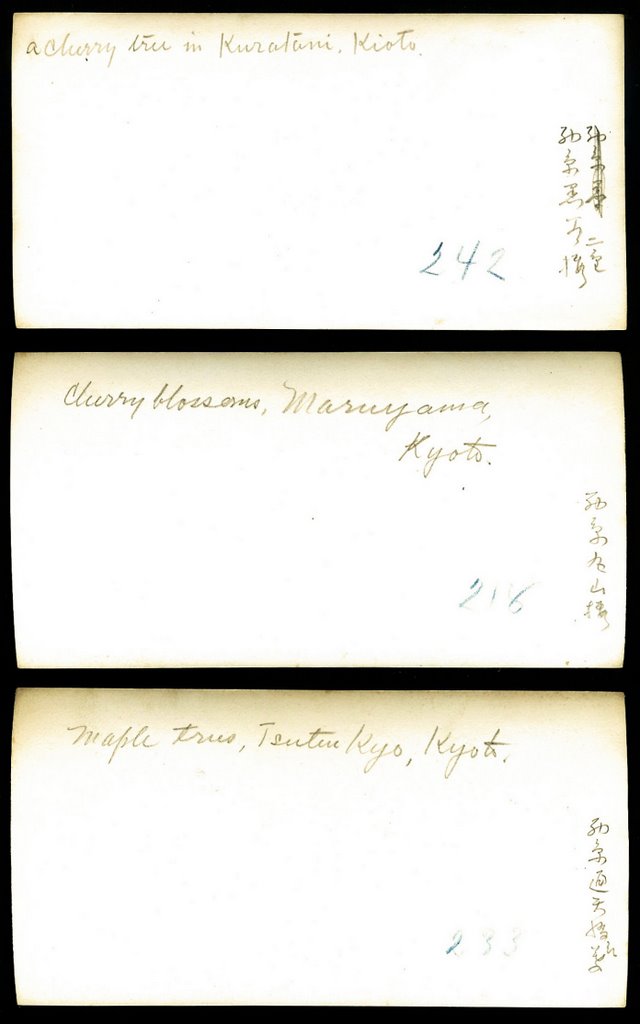 a cherry tree in Kuratani, Kioto.
242
Cherry blossoms, Maruyama,
Kyoto.
京丸山桜
216
Maple trees, Tsutenkyo, Kyoto.
京通天橋
233